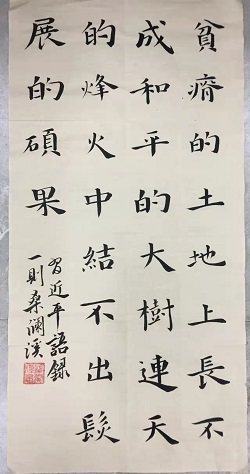 貧瘠的土地上長不
成和平的大樹連天
的烽火中結不出髮
展的碩果
習近平語録
一則桑瀾溪